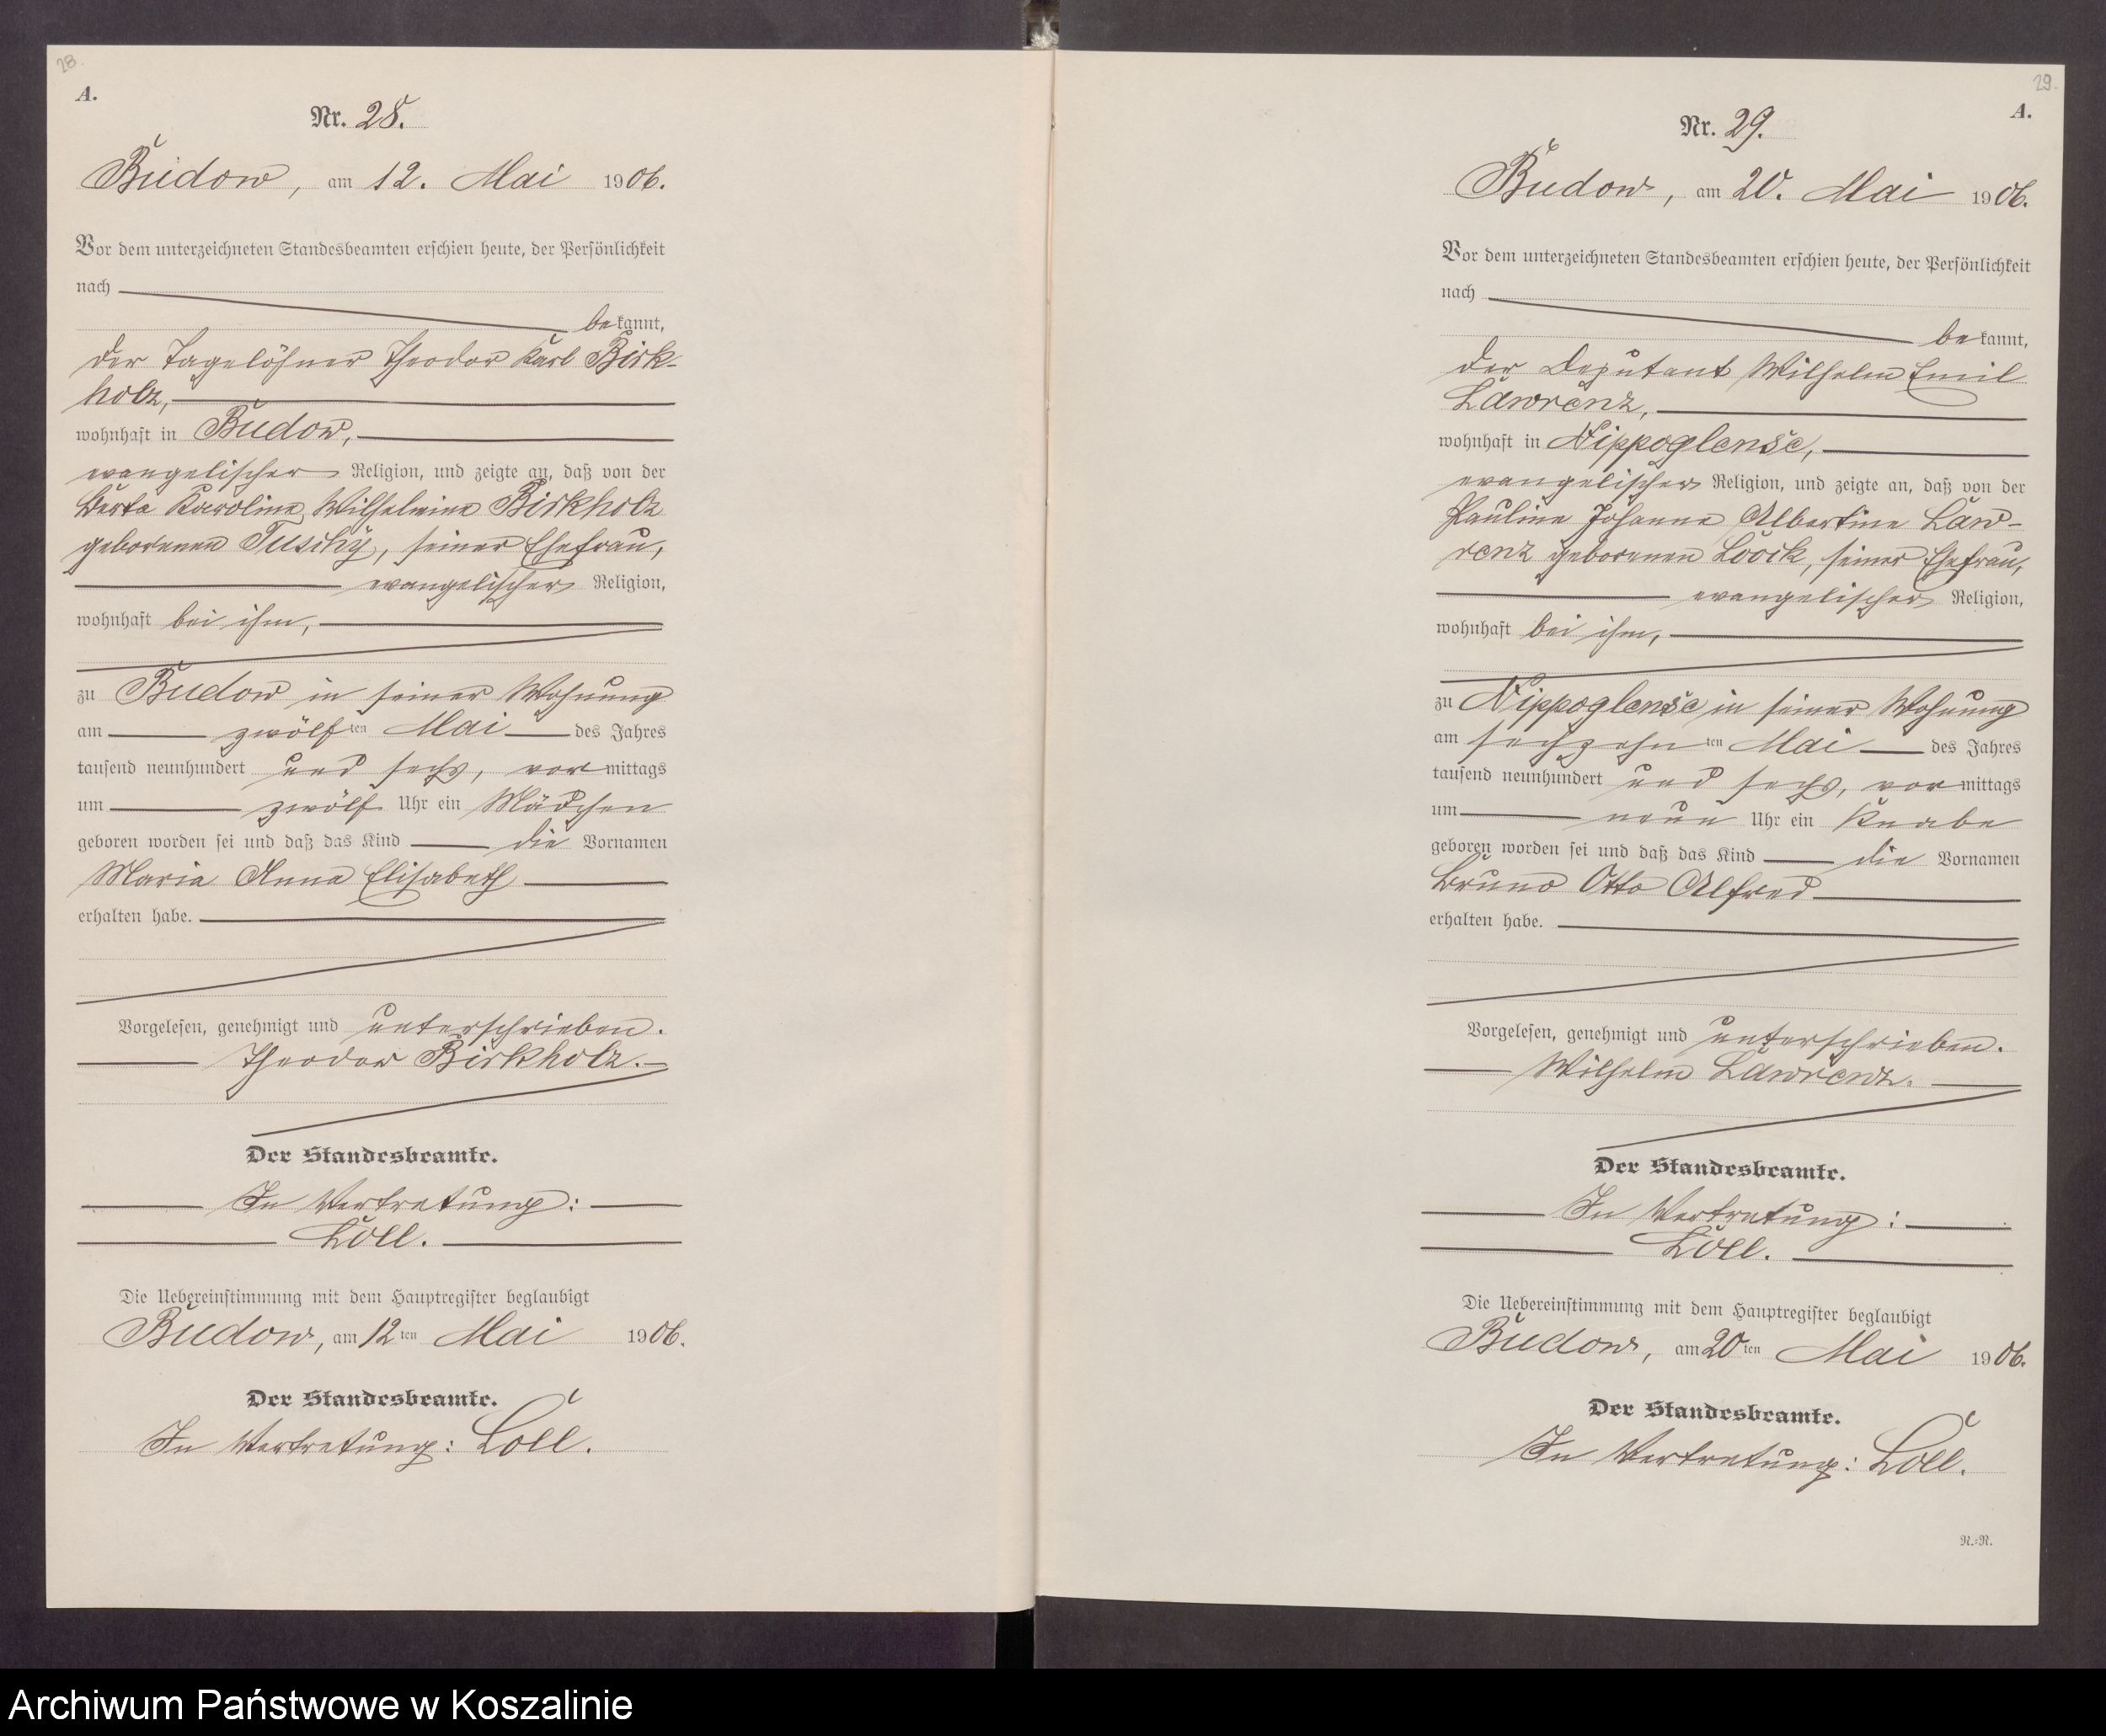 28.
A.
Nr. 28.
Budow, am 12. Mai 1906.
Vor dem unterzeichneten Standesbeamten erschien heute, der Persönlichkeit
nach
bekannt,
der Tagelöhner Theodor Karl Birk-
holz,
wohnhaft in Budow,
evangelischer Religion, und zeigte an, daß von der
Berta Karoline Wilhelmine Birkholz
geborenen Tuschy, seiner Ehefrau,
evangelischer Religion,
wohnhaft bei ihm,
zu Budow in seiner Wohnung
am zwölften Mai des Jahres
tausend neunhundert und sechs, vormittags
um zwölf Uhr ein Mädchen
geboren worden sei und daß das Kind die Vornamen
Maria Anna Elisabeth
erhalten habe.
Vorgelesen, genehmigt und unterschrieben.
Theodor Birkholz.
Der Standesbeamte.
In Vertretung:
Löll.
Die Uebereinstimmung mit dem Hauptregister beglaubigt
Budow, am 12ten Mai 1906.
Der Standesbeamte.
In Vertretung: Löll.
29.
A.
Nr. 29.
Budow, am 20. Mai 1906.
Vor dem unterzeichneten Standesbeamten erschien heute, der Persönlichkeit
nach
bekannt,
der Deputant Wilhelm Emil
Lawrenz,
wohnhaft in Nippoglense,
evangelischer Religion, und zeigte an, daß von der
Pauline Johanne Albertine Law-
renz geborenen Loock, seiner Ehefrau,
evangelischer Religion,
wohnhaft bei ihm,
zu Nippoglense in seiner Wohnung
am sechzehnten Mai des Jahres
tausend neunhundert und sechs, vormittags
um neun Uhr ein Knabe
geboren worden sei und daß das Kind die Vornamen
Bruno Otto Alfred
erhalten habe.
Vorgelesen, genehmigt und unterschrieben.
Wilhelm Lawrenz.
Der Standesbeamte.
In Vertretung:
Löll.
Die Uebereinstimmung mit dem Hauptregister beglaubigt
Budow, am 20ten Mai 1906.
Der Standesbeamte.
In Vertretung: Löll.
N.=N.
Archiwum Państwowe w Koszalinie